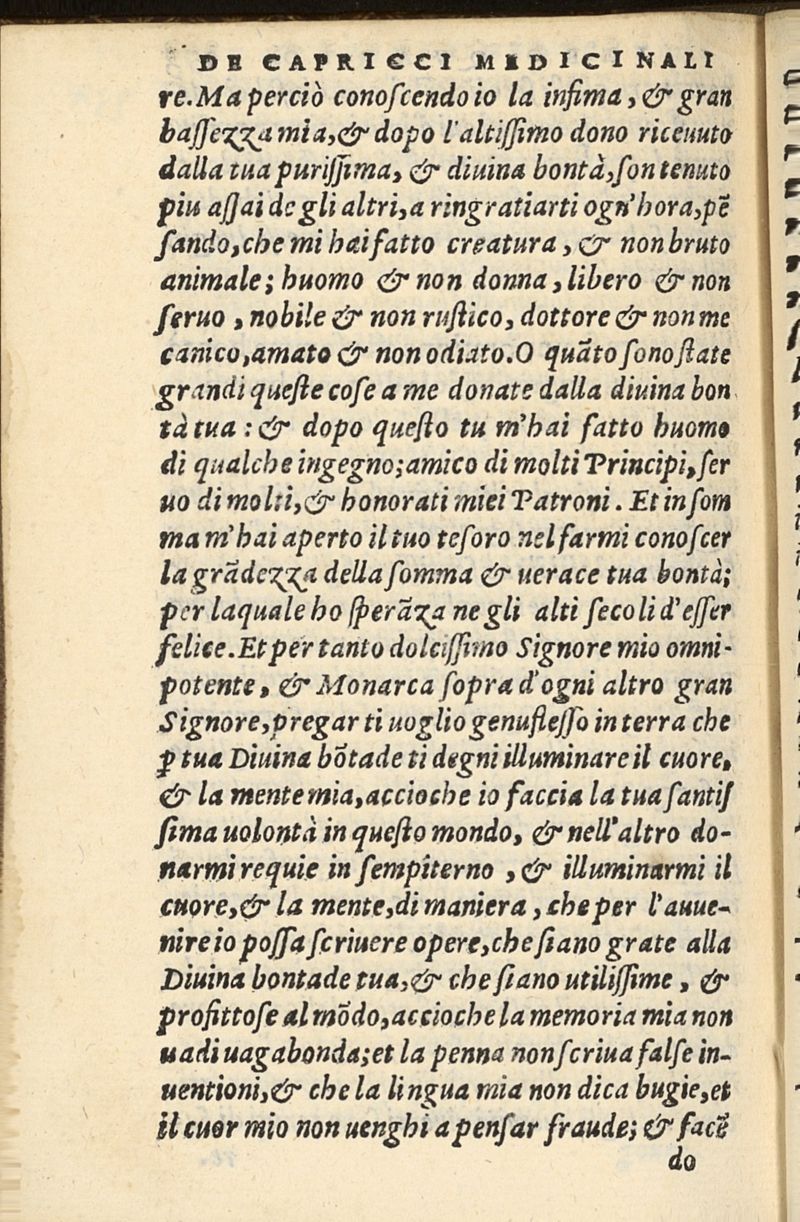 DE CAPRICCI MEDICINALI
re. Ma perciò conoſcendo io la infima, & gran
baſſezza mia, & dopo l'altiſſimo dono riceuuto
dalla tua puriſſima, & diuina bontà, ſon tenuto
piu aſſai de gli altri, a ringratiarti ogn'hora, pẽ
ſando, che mi hai fatto creatura, & non bruto
animale; huomo & non donna, libero & non
ſeruo, nobile & non ruſtico, dottore & non me
canico, amato & non odiato. O quãto ſono ſtate
grandi queſte coſe a me donate dalla diuina bon
tà tua: & dopo queſto tu m'hai fatto huomo
di qualche ingegno; amico di molti Principi, ſer
uo di molti, & honorati miei Patroni. Et in ſom
ma m'hai aperto il tuo teſoro nel farmi conoſcer
la grãdezza della ſomma & uerace tua bontà;
per laquale ho ſperãza ne gli alti ſecoli d'eſſer
felice. Et per tanto dolciſſimo Signore mio omni-
potente, & Monarca ſopra d'ogni altro gran
Signore, pregar ti uoglio genufleſſo in terra che
ꝑ tua Diuina bõtade ti degni illuminare il cuore,
& la mente mia, accioche io faccia la tua ſantiſ
ſima uolontà in queſto mondo, & nell'altro do-
narmi requie in ſempiterno, & illuminarmi il
cuore, & la mente, di maniera, che per l'auue-
nire io poſſa ſcriuere opere, che ſiano grate alla
Diuina bontade tua, & che ſiano utiliſſime, &
profittoſe al mõdo, accioche la memoria mia non
uadi uagabonda; et la penna non ſcriua falſe in-
uentioni, & che la lingua mia non dica bugie, et
il cuor mio non uenghi a penſar fraude; & facẽ
do